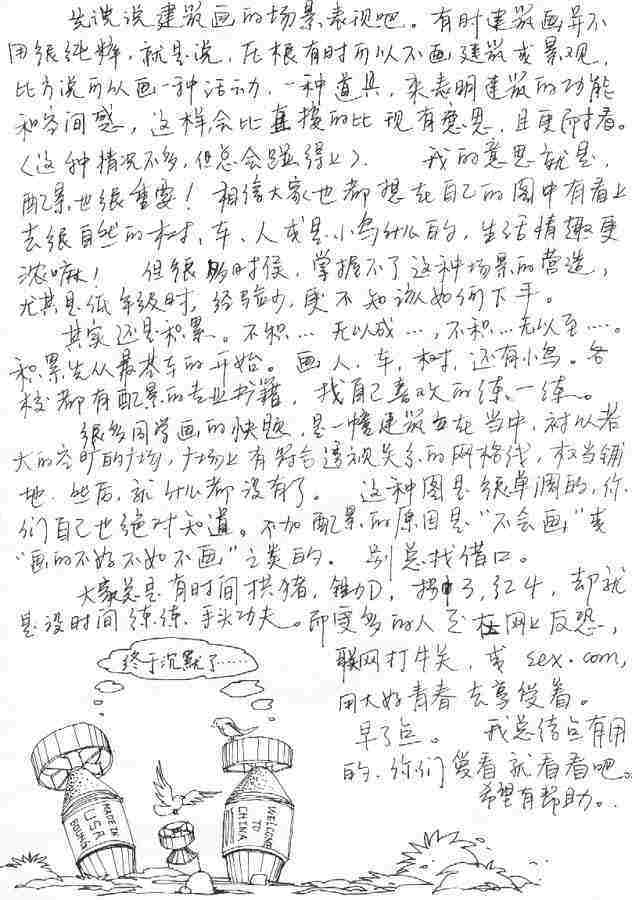 先说说建筑画的场景表现吧。有时建筑画并不
用很纯粹,就是说,在根有时可以不画建筑或景观,
比方说可以画一种活动,一种道具,来表明建筑的功能
和空间感,这样会比直接的比现有意思,且更耐看。
(这种情况不多,但总会碰得上)。 我的意思就是,
配景也很重要!相信大家也都想在自己的图中有看上
去很自然的树、车、人或是小鸟什么的,生活情趣更
浓嘛! 但很多时候,掌握不了这种场景的营造,
尤其是低年级时,经验少,更不知该如何下手。
其实还是积累。不积…无以成…,不积…无以至…。
积累先从最基本的开始。画人、车、树,还有小鸟。各
校都有配景的专业书籍,找自己喜欢的练一练。
很多同学画的快题,是一幢建筑立在当中,衬以若
大的空旷的广场,广场上有符合透视关系的网格线,权当铺
地,然后,就什么都没有了。 这种图是很单调的,你
们自己也绝对知道。不加配景的原因是“不会画”或
“画的不好不如不画”之类的。别总找借口。
大家总是有时间拱猪,锄D,抠3,红4,却就
是没时间练练手头功夫。那更多的人至在网上反恐,
联网打牛关,或sex.com,
用大好青春去享受着。
早了点。 我总结自有用
的,你们爱看就看看吧。
希望有帮助。
终于沉默了……
MADE IN
USA
BOEING
WELCOME
TO
CHINA